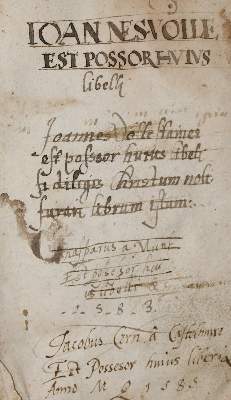 IOANNES VOLLE
EST POSSOR HVIVS
libelli
Joannes Volle
est possor huius libeli
si diligis Christum noli
furari librum istum:
Gaspparus a Munt
Est possesor hui
us libelli
- 1 5 8 3.
Jacobus à
Est Possesor huius liberi
Anno M D 1585